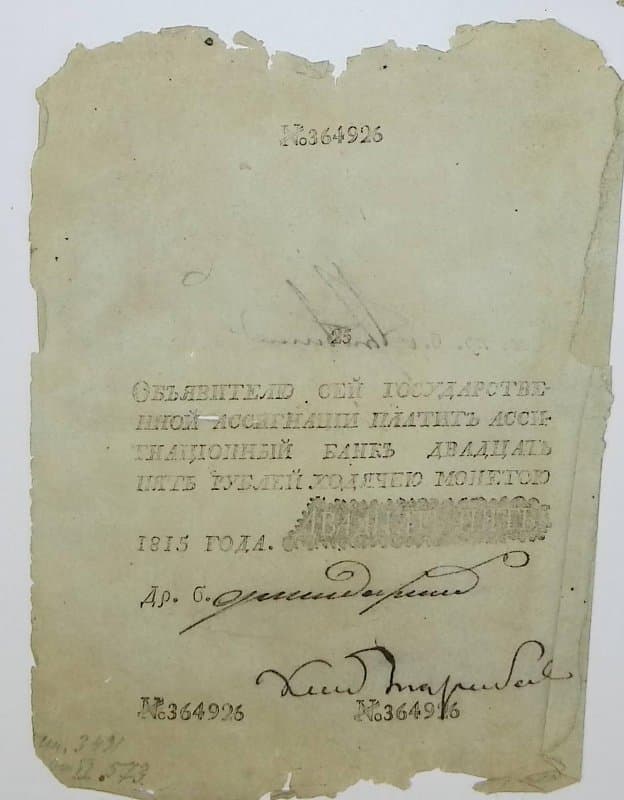 №364926
25
ОБЪЯВИТЕЛЮ СЕЙ ГОСУДАРСТВЕ-
ННОЙ АССИГНАЦІИ ПЛАТИТЪ АССИ-
ГНАЦІОННЫЙ БАНКЪ ДВАДЦАТЬ
ПЯТЬ РУБЛЕЙ ХОДЯЧЕЮ МОНЕТОЮ
1815 ГОДА.
Др. б.
№364926 №364926
573